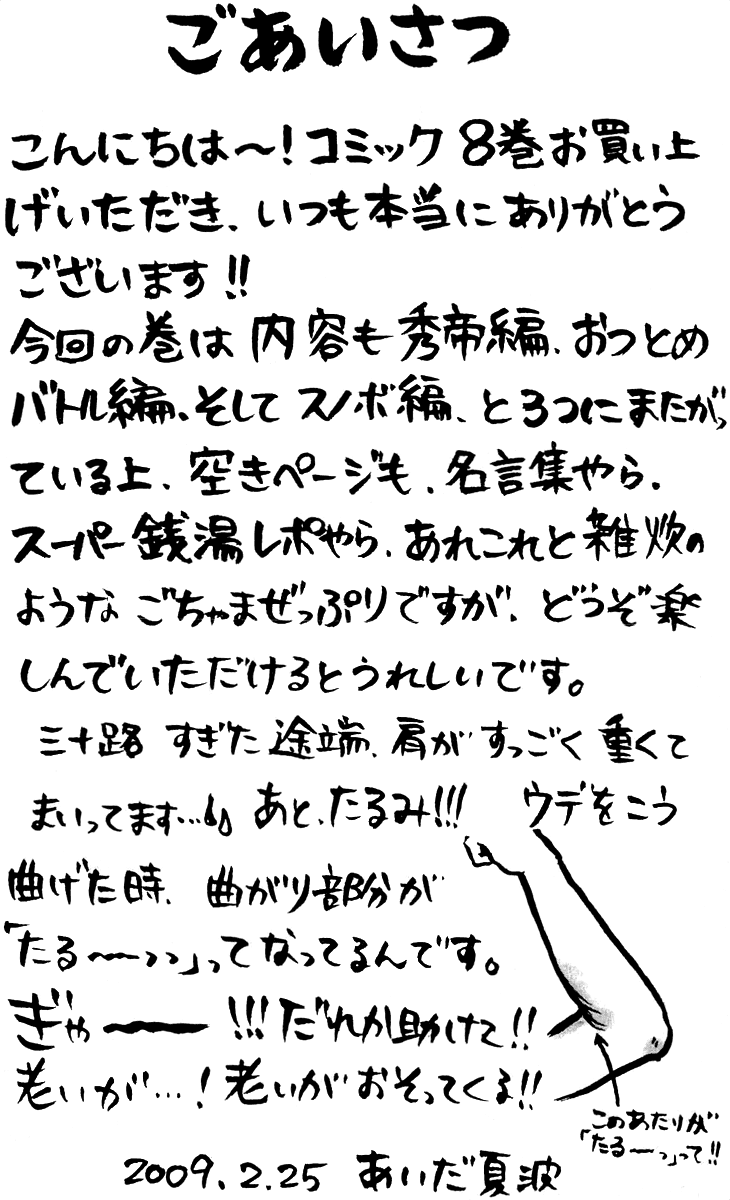 ごあいさつ
こんにちは〜!コミック8巻お買い上
げいただき、いつも本当にありがとう
ございます!!
今回の巻は内容も秀帝編、おつとめ
バトル編、そしてスノボ編、と3つにまたがっ
ている上、空きページも、名言集やら、
スーパー銭湯レポやら、あれこれと雑炊の
ようなごちゃまぜっぷりですが、どうぞ楽
しんでいただけるとうれしいです。
三十路すぎた途端、肩がすっごく重くて
まいってます…あと、たるみ!!! ウデをこう
曲げた時、曲がり部分が
「たる〜〜っっ」ってなってるんです。
ぎゃーーー!!!だれか助けて!!
老いが…!老いがおそってくる!!
このあたりが
「たる〜っ」って!!
2009.2.25 あいだ夏波